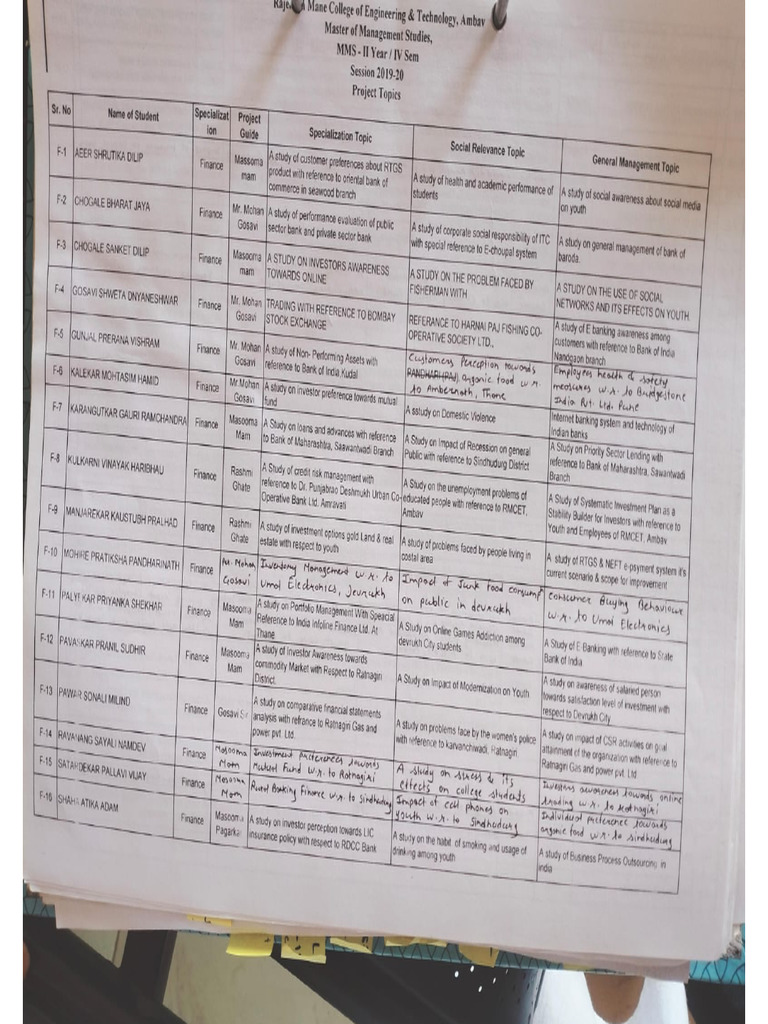 Mane College of Engineering & Technology, Ambav
Master of Management Studies,
MMS - II Year / IV Sem
Session 2019-20
Project Topics
Sr. No Name of Student Specializat ion Project Guide Specialization Topic Social Relevance Topic General Management Topic
F-1 AEER SHRUTIKA DILIP Finance Masooma mam A study of customer preferences about RTGS product with reference to oriental bank of commerce in seawood branch A study of health and academic performance of students A study of social awareness about social media on youth
F-2 CHOGALE BHARAT JAYA Finance Mr. Mohan Gosavi A study of performance evaluation of public sector bank and private sector bank A study of corporate social responsibility of ITC with special reference to E-choupal system A study on general management of bank of baroda.
F-3 CHOGALE SANKET DILIP Finance Masooma mam A STUDY ON INVESTORS AWARENESS TOWARDS ONLINE A STUDY ON THE PROBLEM FACED BY FISHERMAN WITH A STUDY ON THE USE OF SOCIAL NETWORKS AND ITS EFFECTS ON YOUTH
F-4 GOSAVI SHWETA DNYANESHWAR Finance Mr. Mohan Gosavi TRADING WITH REFERENCE TO BOMBAY STOCK EXCHANGE REFERANCE TO HARNAI PAJ FISHING CO-OPERATIVE SOCIETY LTD., A study of E banking awareness among customers with reference to Bank of India Nandgaon branch
F-5 GUNJAL PRERANA VISHRAM Finance Mr. Mohan Gosavi A study of Non- Performing Assets with reference to Bank of India,Kudal Customers Perception towards organic food w.r. to Ambernath, Thane Employees health & safety measures w.r. to Bridgestone India Pvt. Ltd. Pune
F-6 KALEKAR MOHTASIM HAMID Finance Mr.Mohan Gosavi A study on investor preference towards mutual fund A sstudy on Domestic Violence Internet banking system and technology of Indian banks
F-7 KARANGUTKAR GAURI RAMCHANDRA Finance Masooma Mam A Study on loans and advances with reference to Bank of Maharashtra, Saawantwadi Branch A Study on Impact of Recession on general Public with reference to Sindhudurg District A Study on Priority Sector Lending with reference to Bank of Maharashtra, Sawantwadi Branch
F-8 KULKARNI VINAYAK HARIBHAU Finance Rashmi Ghate A Study of credit risk management with reference to Dr. Punjabrao Deshmukh Urban Co-Operative Bank Ltd. Amravati A Study on the unemployment problems of educated people with reference to RMCET, Ambav A Study of Systematic Investment Plan as a Stability Builder for Investors with reference to Youth and Employees of RMCET, Ambav
F-9 MANJAREKAR KAUSTUBH PRALHAD Finance Rashmi Ghate A study of investment options gold Land & real estate with respect to youth A study of problems faced by people living in costal area A study of RTGS & NEFT e-psyment system it's current scenario & scope for improvement
F-10 MOHIRE PRATIKSHA PANDHARINATH Finance Mr. Mohan Gosavi Inventory Management w.r. to Umol Electronics, Jevrukh Impact of Junk food consump on public in devrukh Consumer Buying Behaviour w.r. to Umol Electronics
F-11 PALYEKAR PRIYANKA SHEKHAR Finance Masooma Mam A study on Portfolio Management With Speacial Reference to India Infoline Finance Ltd. At Thane A Study on Online Games Addiction among devrukh City students A Study of E Banking with reference to State Bank of India
F-12 PAVASKAR PRANIL SUDHIR Finance Masooma Mam A study of Investor Awareness towards commodity Market with Respect to Ratnagiri District. A Study on Impact of Modernization on Youth A study on awareness of salaried person towards satisfaction level of investment with respect to Devrukh City
F-13 PAWAR SONALI MILIND Finance Gosavi Sir A study on comparative financial statements analysis with refrance to Ratnagiri Gas and power pvt. Ltd. A study on problems face by the women's police with reference to karvanchiwadi, Ratnagiri A study on impact of CSR activities on goal attainment of the organization with reference to Ratnagiri Gas and power pvt. Ltd
F-14 RAVANANG SAYALI NAMDEV Finance Masooma Mam Investment preferences towards Mutual Fund w.r. to Ratnagiri A study on stress & its effects on college students Investors awareness towards online trading w.r. to Ratnagiri
F-15 SATARDEKAR PALLAVI VIJAY Finance Masooma Mam Rural Banking Finance w.r. to Sindhudurg Impact of cell phones on youth w.r. to Sindhudurg Individual preference towards organic food w.r. to sindhudurg
F-16 SHAHA ATIKA ADAM Finance Masooma Pagarkar A study on investor perception towards LIC insurance policy with respect to RDCC Bank A study on the habit of smoking and usage of drinking among youth A study of Business Process Outsourcing in india